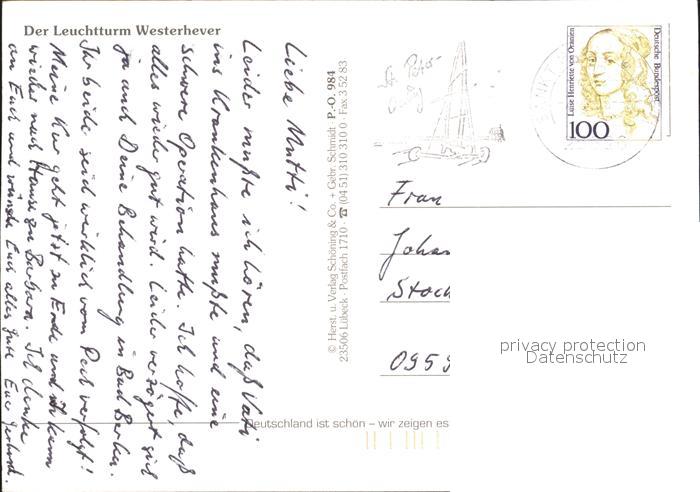 Der Leuchtturm Westerhever
Liebe Mutti!
Leider mußte ich hören, daß Vati
ins Krankenhaus mußte und eine
schwere Operation hatte. Ich hoffe, daß
alles wieder gut wird. Leider verzögert sich
ja auch Deine Behandlung in Bad Berka.
Ihr beide seid wirklich vom Pech verfolgt!
Meine Kur geht jetzt zu Ende und ich kann
wieder nach Hause zu Barbara. Ich denke
an Euch und wünsche Euch alles Gute Euer Gerhard.
© Herst. u. Verlag Schöning & Co. + Gebr. Schmidt P.-O. 984
23506 Lübeck · Postfach 1710 · ☎ (04 51) 310 310 0 · Fax 3 52 83
St. Peter-
Ording
Luise Henriette von Oranien
Deutsche Bundespost
100
Frau
Johan
Stock
0959
privacy protection
Datenschutz
Deutschland ist schön – wir zeigen es